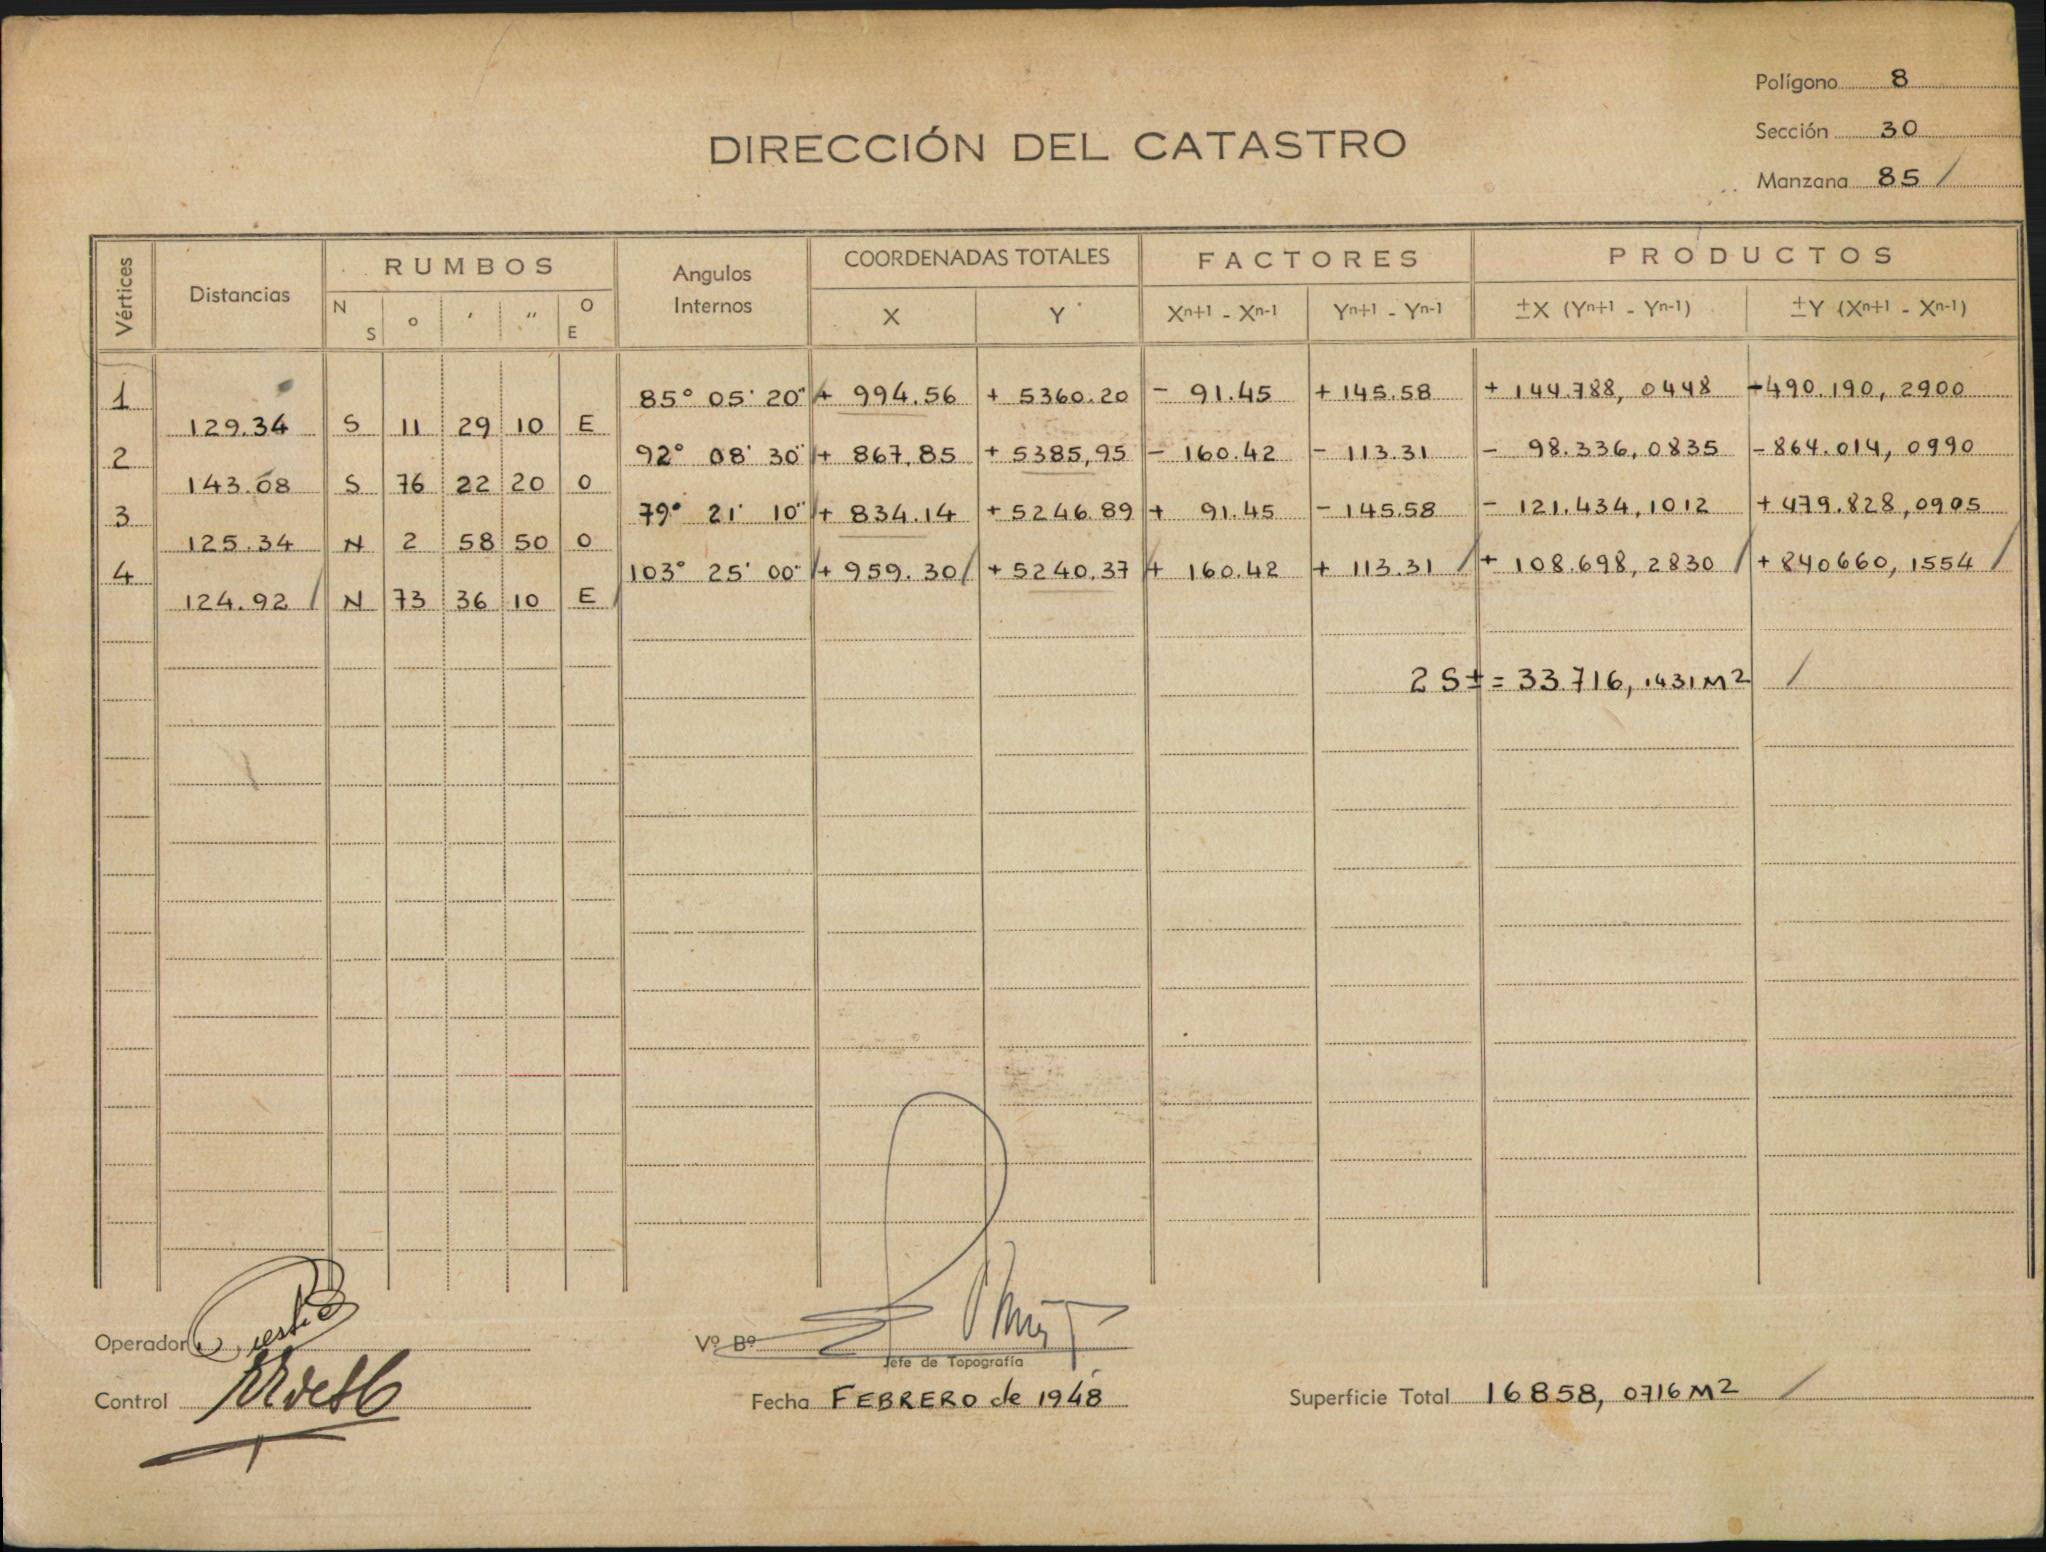 Polígono 8
DIRECCIÓN DEL CATASTRO
Sección 30
Manzana 85 /
Vértices Distancias RUMBOS Angulos Internos COORDENADAS TOTALES FACTORES PRODUCTOS
N S o ′ ″ O E X Y Xn+1 - Xn-1 Yn+1 - Yn-1 ±X (Yn+1 - Yn-1) ±Y (Xn+1 - Xn-1)
1 85° 05' 20" + 994.56 + 5360.20 - 91.45 + 145.58 + 144.788, 0448 -490.190, 2900
129.34 S 11 29 10 E
2 92° 08' 30" + 867,85 + 5385,95 - 160.42 - 113.31 - 98.336, 0835 -864.014, 0990
143.08 S 76 22 20 O
3 79° 21' 10" + 834.14 + 5246.89 + 91.45 - 145.58 - 121.434, 1012 + 479.828,0905
125.34 N 2 58 50 O
4 103° 25' 00" + 959.30 / + 5240.37 + 160.42 + 113.31 / + 108.698, 2830 / + 840660, 1554 /
124.92 / N 73 36 10 E /
2 S± = 33.716, 1431 M2 /
Operador
Vº Bº
Jefe de Topografía
Control
Fecha FEBRERO de 1948
Superficie Total 16858, 0716 M2 /